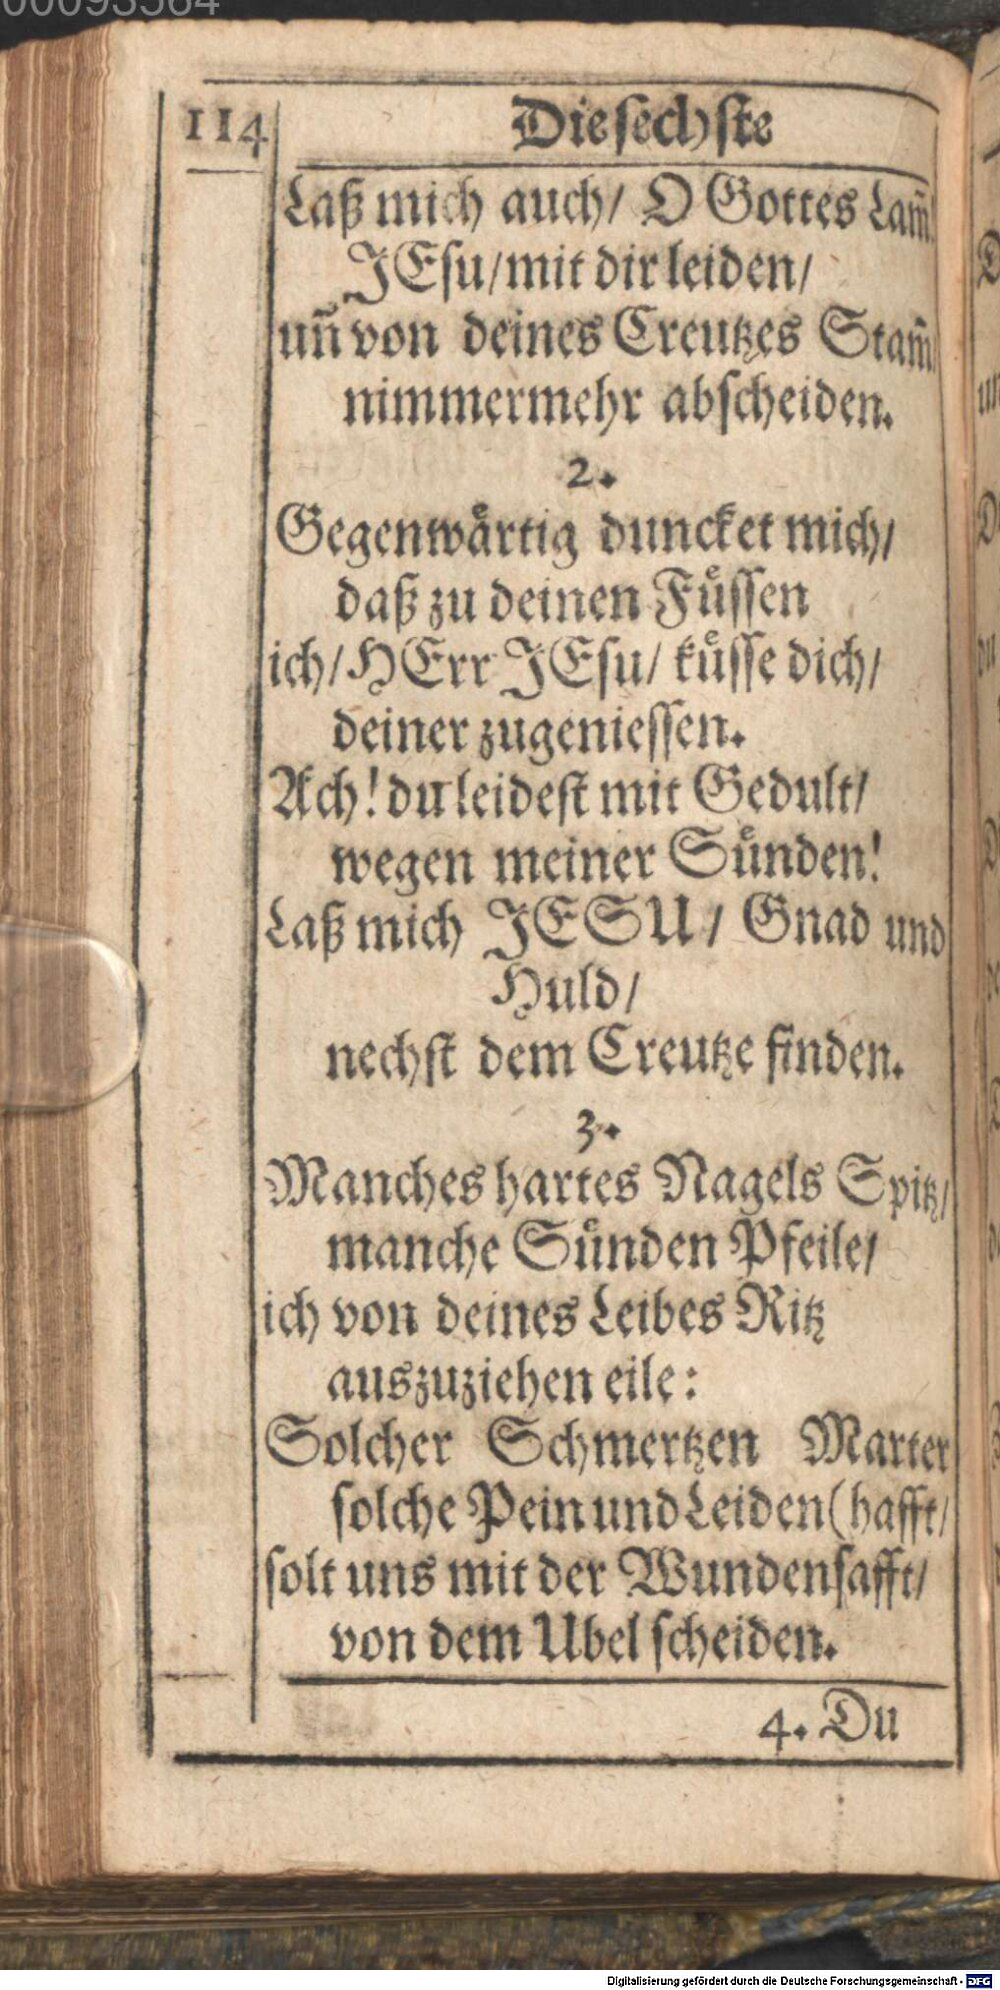 00093564
114
Die sechste
Laß mich auch/ O Gottes Lam̃!
JEsu/ mit dir leiden/
uñ von deines Creutzes Stam̃/
nimmermehr abscheiden.
2.
Gegenwaͤrtig duncket mich/
daß zu deinen Fuͤssen
ich/ HErr JEsu/ kuͤsse dich/
deiner zugeniessen.
Ach! du leidest mit Gedult/
wegen meiner Suͤnden!
Laß mich JESU/ Gnad und
Huld/
nechst dem Creutze finden.
3.
Manches hartes Nagels Spitz/
manche Suͤnden Pfeile/
ich von deines Leibes Ritz
auszuziehen eile:
Solcher Schmertzen Marter
solche Pein und Leiden (hafft/
solt uns mit der Wundensafft/
von dem Ubel scheiden.
4. Du
Digitalisierung gefördert durch die Deutsche Forschungsgemeinschaft - DFG